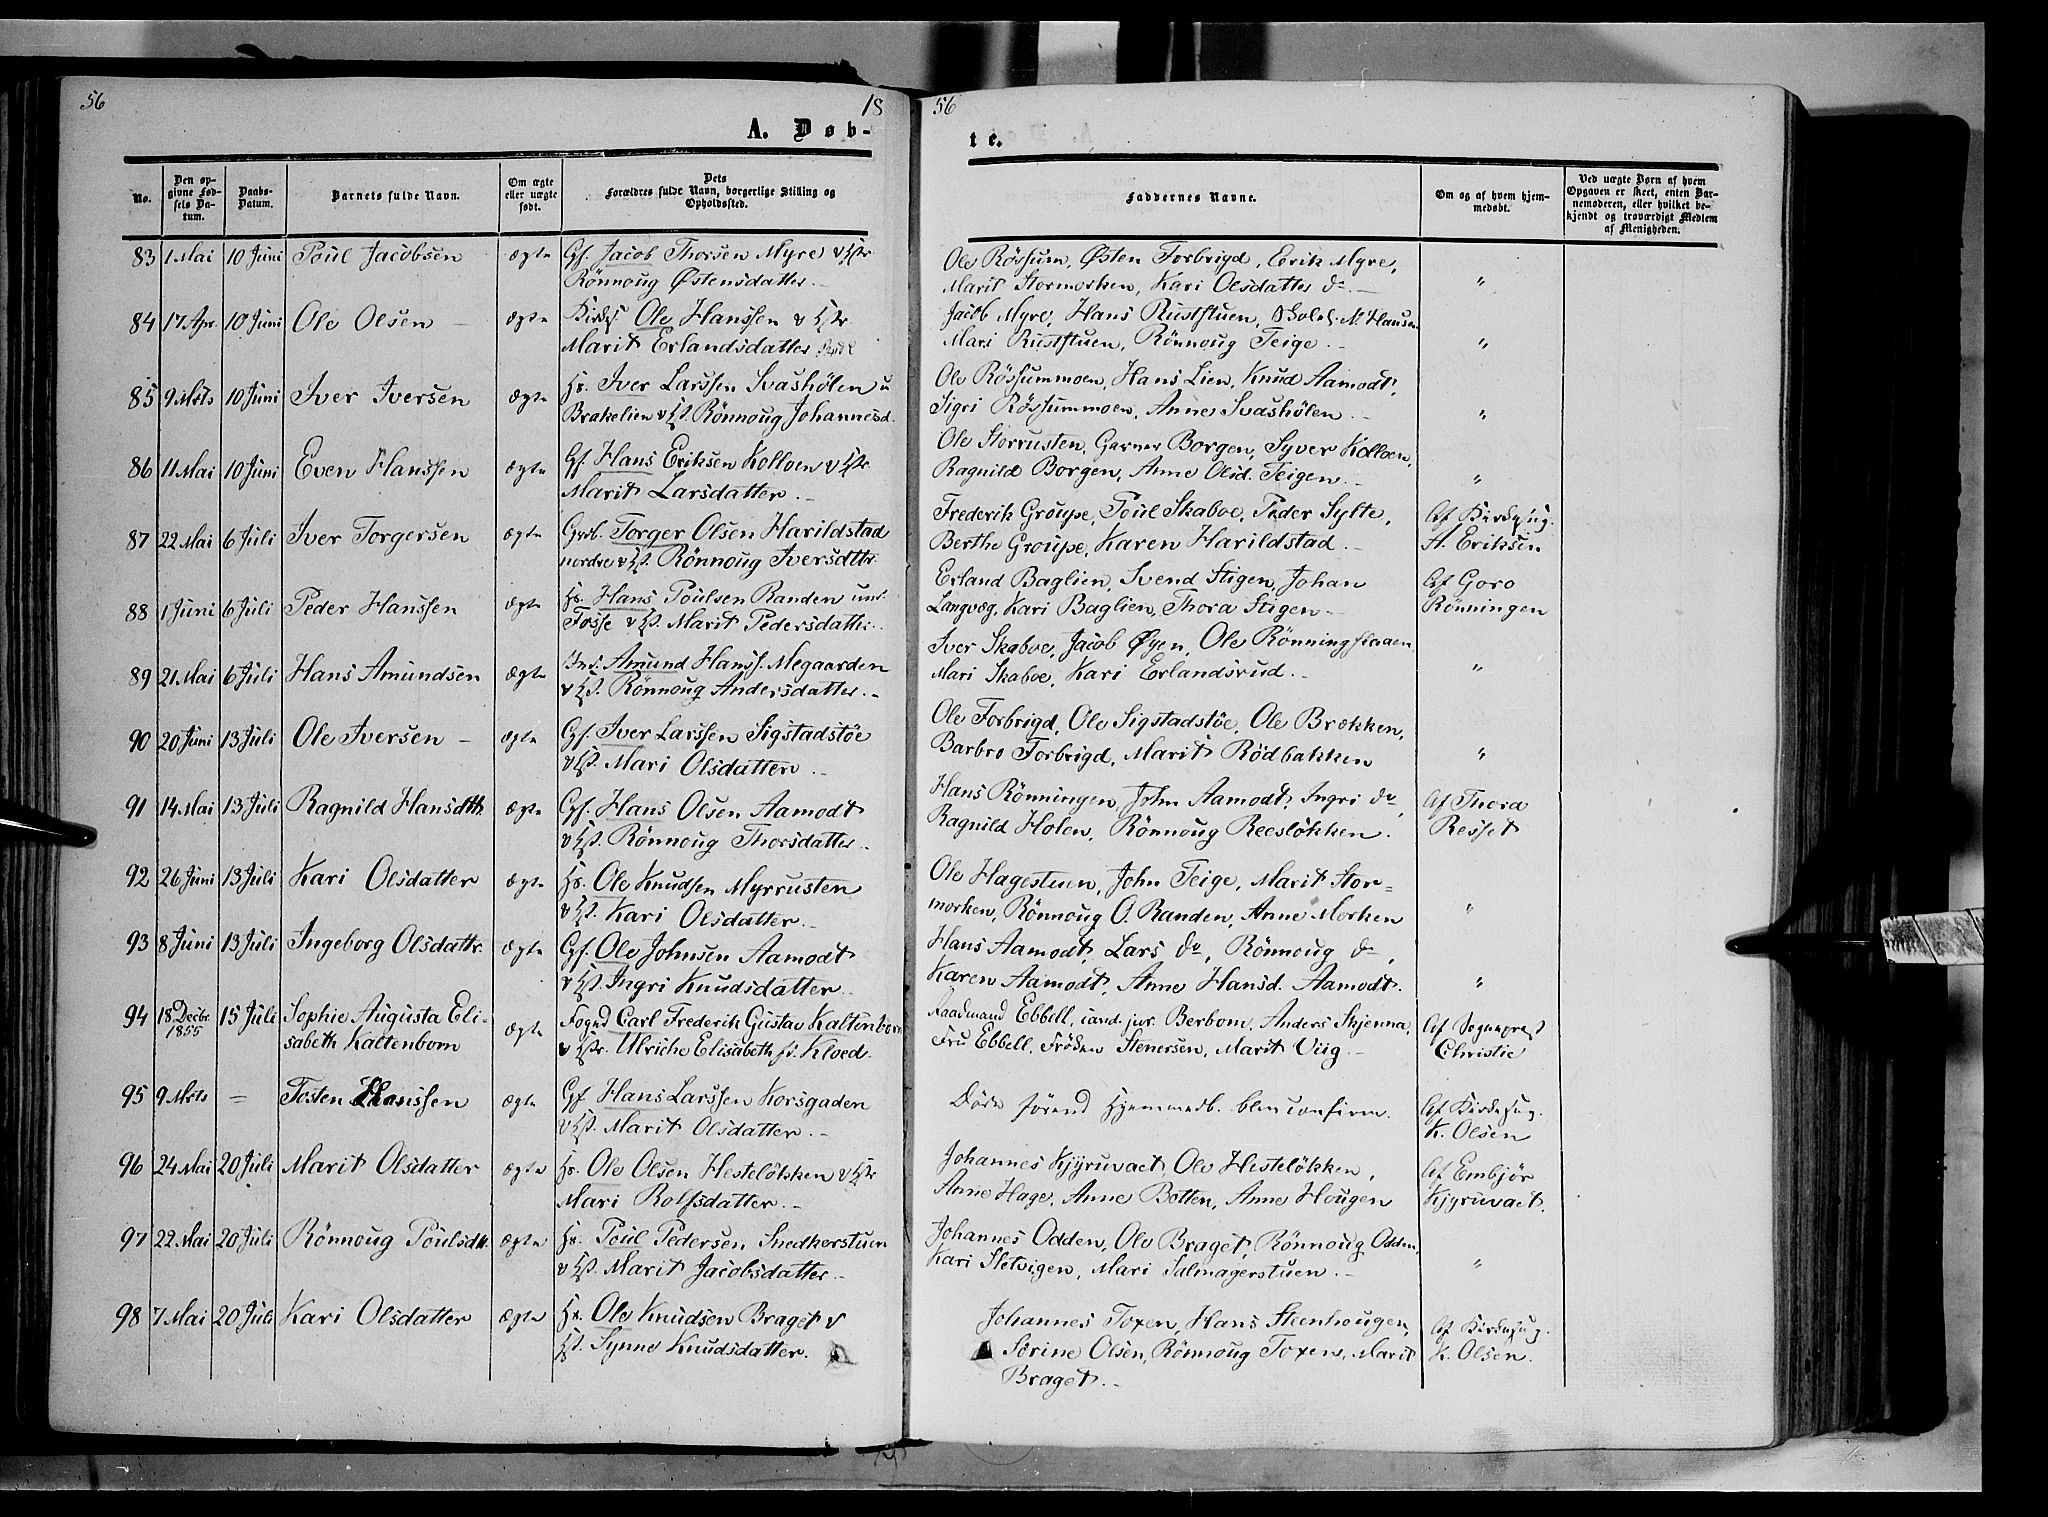 56
18
56
A. Døb-
te.
No.
Den op-
givne Fød-
sels Da-
tum.
Daabs-
Datum.
Barnets fulde Navn.
Om ægte
eller uægte
født.
Dets
Forældres fulde Navn, borgerlige Stilling og
Opholdssted.
Faddernes Navne.
Om og af hvem hjem-
medøbt.
Ved uægte Børn af hvem
Opgaven er skeet, enten Bar-
nemoderen, eller hvilket be-
kjendt og troværdigt Medlem
af Menigheden.
83 1 Mai 10 Juni Poul Jacobsen ægte Gf. Jacob Thorsen Myre & Hstr
Rönnoug Østensdatter. –
Ole Rössum, Østen Forbrigd, Erik Myre,
Marit Stormorken, Kari Olsdatter do. – "
84 17 Apr. 10 Juni Ole Olsen – ægte Ole Hanssen & Hstr
Marit Erlandsdatter
Jacob Myre, Hans Ruststuen, Skolel. N. Hansen
Mari Ruststuen, Rönnoug Teige. – "
85 9 Mrts 10 Juni Iver Iversen ægte Hs. Iver Larssen Svashölen u
Brakelien & Hst. Rönnoug Johannesd.
Ole Rössummoen, Hans Lien, Knud Aamodt,
Sigri Rössummoen, Anne Svashölen. – "
86 11 Mai 10 Juni Even Hanssen ægte Gf. Hans Eriksen Kolloen & Hstr
Marit Larsdatter. –
Ole Storrusten, Garner Borgen, Syver Kolloen,
Ragnild Borgen, Anne Olsd. Teigen. – "
87 22 Mai 6 Juli Iver Torgersen ægte Grb. Torger Olsen Harildstad
nordre & Hst. Rönnoug Iversdttr.
Frederik Groupe, Poul Skaboe, Peder Sylte, Af Kirkesng.
Berthe Groupe, Karen Harildstad. – H. Eriksen
88 1 Juni 6 Juli Peder Hanssen ægte Hs. Hans Poulsen Randen und.
Fosse & Hst. Marit Pedersdatter. –
Erland Baglien, Svend Stigen, Johan Af Goro
Langvæg, Kari Baglien, Thora Stigen – Rönningen
89 21 Mai 6 Juli Hans Amundsen ægte Ins. Amund Hanss. Megaarden
& Hst. Rönnoug Andersdatter. –
Iver Skaboe, Jacob Øyen, Ole Rönningflaaen,
Mari Skaboe, Kari Erlandsrud. – "
90 20 Juni 13 Juli Ole Iversen – ægte Gf. Iver Larssen Sigstadstöe
& Hst. Mari Olsdatter. –
Ole Forbrigd, Ole Sigstadstöe, Ole Brækken,
Barbro Forbrigd, Marit Rödbakken "
91 14 Mai 13 Juli Ragnild Hansdttr. ægte Gf. Hans Olsen Aamodt
& Hst. Rönnoug Thorsdatter. –
Hans Rönningen, John Aamodt, Ingri do, Af Thora
Ragnild Holen, Rönnoug Reeslökken. Resset
92 26 Juni 13 Juli Kari Olsdatter ægte Hs. Ole Knudsen Myrrusten
& Hst. Kari Olsdatter. –
Ole Hagestuen, John Teige, Marit Stor=
morken, Rönnoug O. Randen, Anne Morken "
93 8 Juni 13 Juli Ingeborg Olsdattr. ægte Gf. Ole Johnsen Aamodt
& Hst. Ingri Knudsdatter. –
Hans Aamodt, Lars do, Rönnoug do,
Karen Aamodt, Anne Hansd. Aamodt. "
94 18 Decbr 1855 15 Juli Sophie Augusta Eli-
sabeth Kaltenborn ægte Fogd Carl Frederik Gustav Kaltenborn
& Hstr. Ulriche Elisabeth f. Kloed.
Raadmand Ebbell, cand. jur. Berbom, Anders Skjenna, Af Sogneprest
Fru Ebbell, Fröken Stenersen, Marit Viig. – Christie
95 9 Mrts = Tosten Hanssen ægte Gf Hans Larssen Korsgaden
& Hst. Marit Olsdatter. –
Döde förend Hjemmedb. blev confirm. Af Kirkesng.
K. Olsen
96 24 Mai 20 Juli Marit Olsdatter ægte Hs. Ole Olsen Hestelökken & Hstr
Mari Rolfsdatter. –
Johannes Kjyruvaet, Ole Hestelökken, Af Embjör
Anne Hage, Anne Botten, Anne Hougen Kjyruvaet.
97 22 Mai 20 Juli Rönnoug Poulsdtr. ægte Hs. Poul Pedersen Snedkerstuen
& Hst. Marit Jacobsdatter. –
Johannes Odden, Ole Braget, Rönnoug Odden,
Kari Sletvigen, Mari Salmagerstuen. – "
98 7 Mai 20 Juli Kari Olsdatter ægte Hs. Ole Knudsen Braget &
Hst. Synne Knudsdatter.
Johannes Toxen, Hans Steenhougen, Af Kirkesng.
Sørine Olsen, Rönnoug Toxen, Marit K. Olsen.
Braget. –